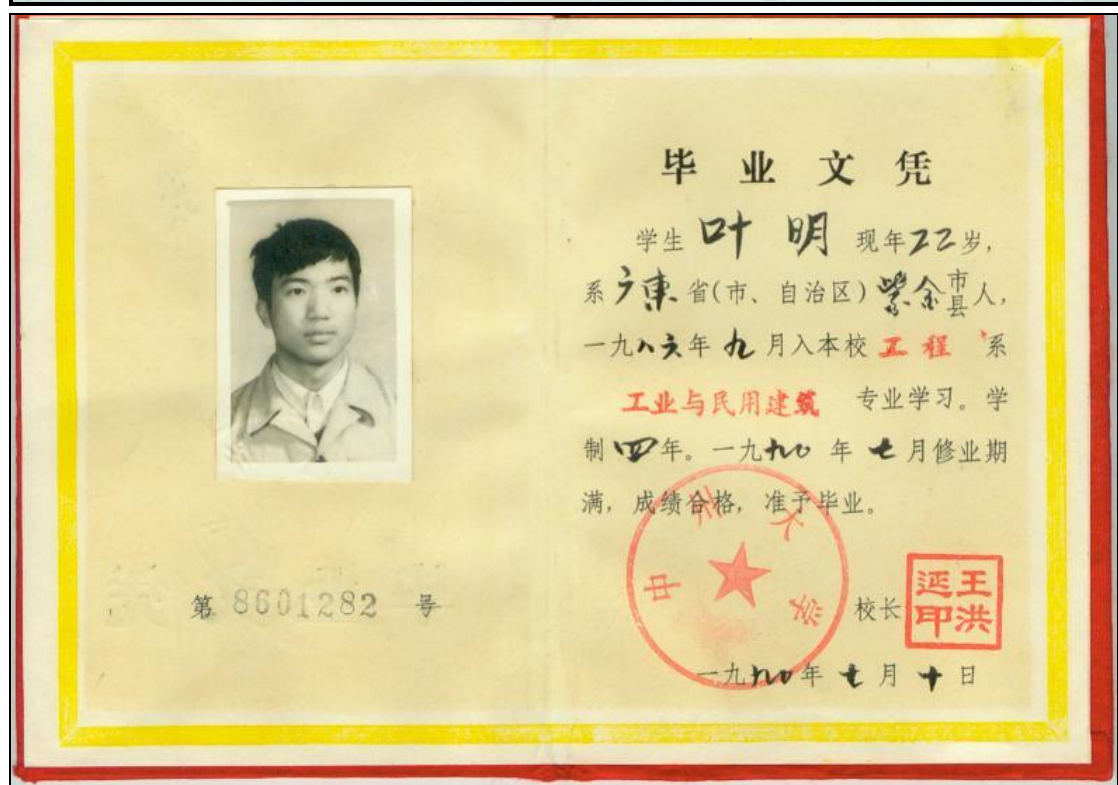 毕业文凭
学生 叶明 现年22岁，
系广东省(市、自治区)紫金市县人，
一九八六年九月入本校工程系
工业与民用建筑 专业学习。学
制四年。一九九〇年七月修业期
满，成绩合格，准予毕业。
中州大学
校长 王洪延印
第 8601282 号
一九九〇年七月十日